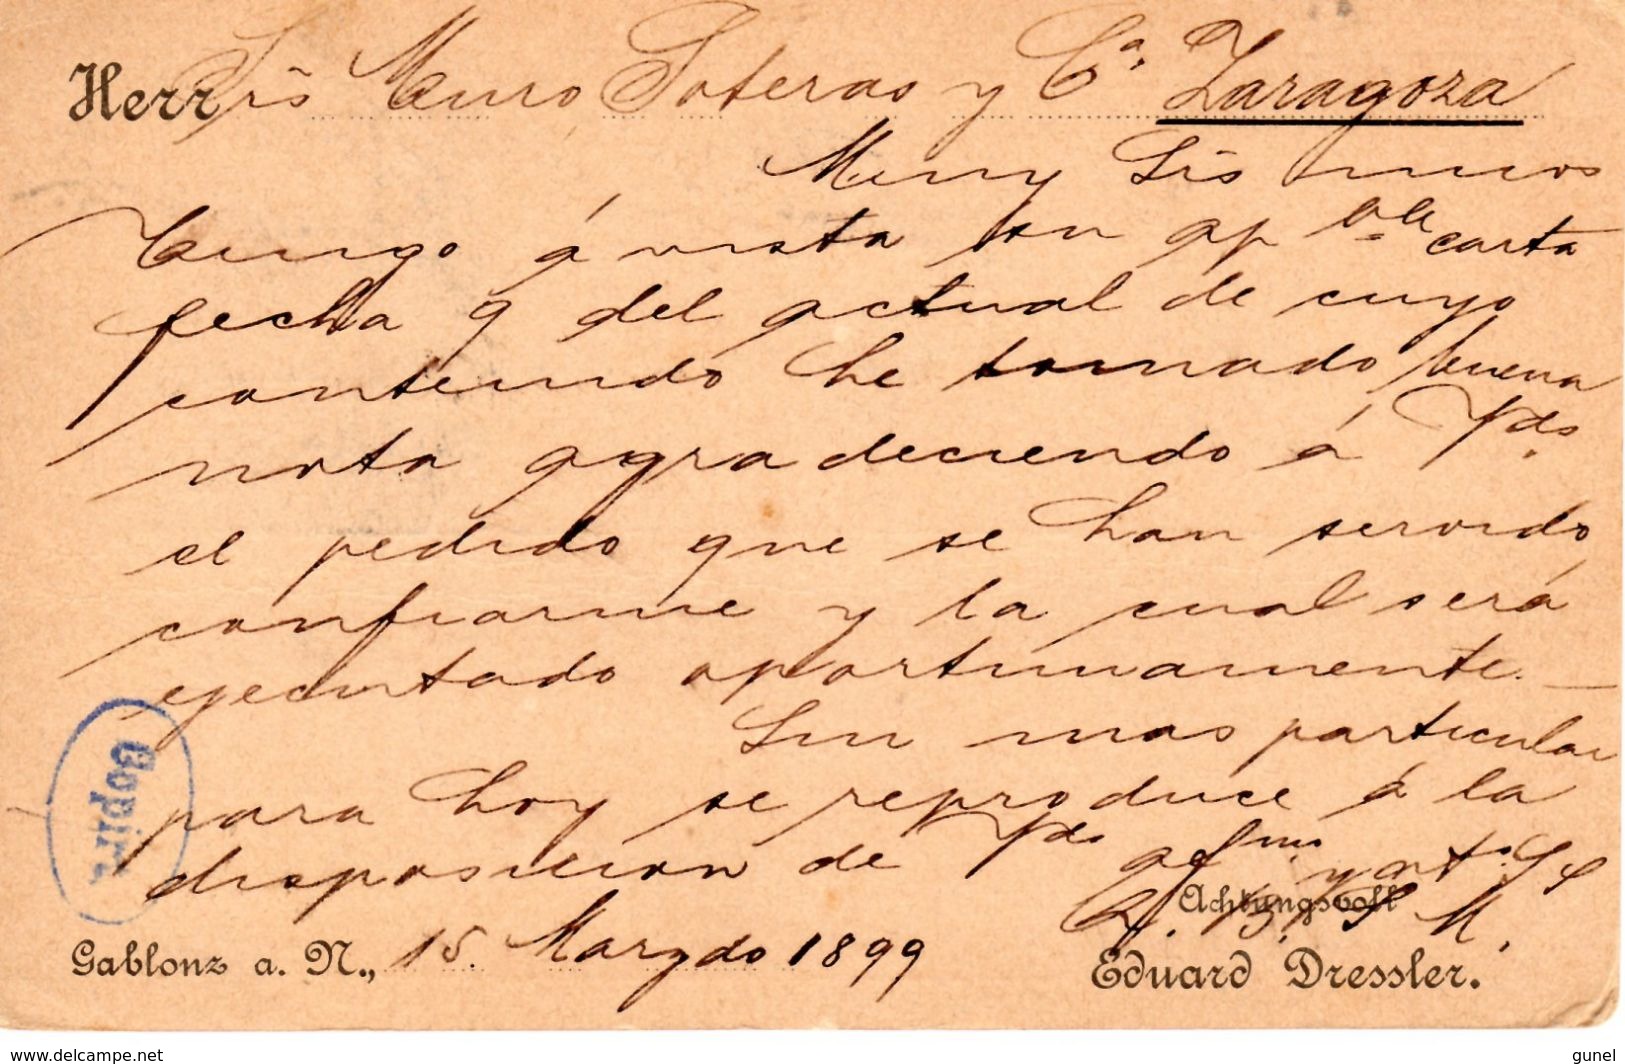 Herr Srs Muro Soteras y Ca. Zaragoza
Muy Srs mios
Tengo á vista su ap ble carta
fecha 9 del actual de cuyo
contenido he tomado buena
nota agradeciendo á Vds.
el pedido que se han servido
confiarme y la cual será
ejecutado oportunamente. —
Sin mas particular
para hoy se reproduce á la
disposicion de Vds afmo. y ato. S S
Q. B. S. M.
Achtungsvoll
Gablonz a. N., 15. Marzdo 1899
Eduard Dressler.
Copirt
www.delcampe.net
gunel